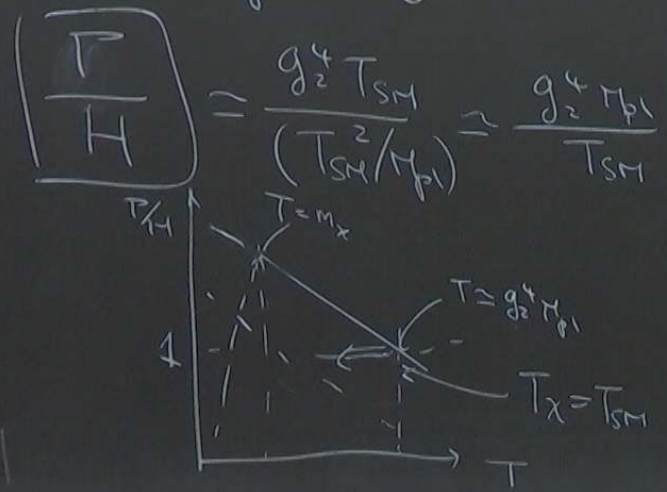 Γ/H ≃ g₂⁴ T_SM / (T_SM²/M_pl) ≃ g₂⁴ M_pl / T_SM
Γ/H
T=m_x
T≃g₂⁴M_pl
1
T_χ=T_SM
T